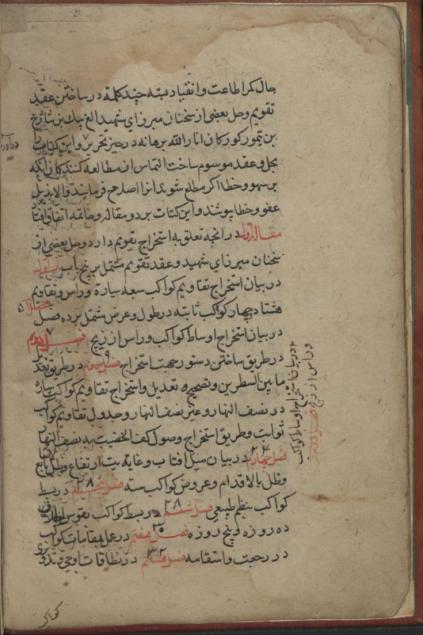 حال کمر اطاعت و انقیاد بسته چند کلمه در ساختن عقد
تقویم وحل بعضی از سخنان میرزای شهید الغ بیک بن شاهرخ
بن تیمور کورکان انار الله برهانه در حیز تحریر و این کتاب
بحل و عقد موسوم ساخت التماس از مطالعه کنندکان آنکه
بر سهو و خطا اکر مطلع شوند انرا اصلاح فرمایند والا بذیل
عفو و خطا پوشند و این کتاب بر دو مقاله و خاتمه اتفاق افتاد
مقاله اول در انچه تعلق به استخراج تقویم دارد وحل بعضی از
سخنان میرزای شهید و عقد تقویم مشتمل بر پنج باب باب اول
در بیان استخراج تقاویم کواکب سبعه سیاره و راس و تقاویم
هشتاد چهار کواکب ثابته در طول و عرض مشتمل بر ده فصل
در بیان استخراج اوساط کواکب و راس از زیج فصل دوم
در طریق ساختن دستور جهت استخراج فصل سوم در طریق
ما بین السطرین و تصحیح تعدیل و استخراج تقاویم کواکب سیاره
در نصف النهار و غیر نصف النهار و جدول تقاویم کواکب
ثوابت و طریق استخراج وصول کف الخضیب به نصف النهار
فصل چهارم در بیان میل افتاب و غایه ارتفاع و ظل
و ظل بالاقدام و عروض کواکب سته فصل پنجم در بسط
کواکب بنظم طبیعی فصل ششم در بسط کواکب بقوس
ده روزه و پنج روزه فصل هفتم در عمل مقامات کواکب
در رجعت و استقامه فصل هشتم در نطاقات اوجی و تدویری
در بیان استخراج اوساط کواکب
و راس از زیج فصل دوم